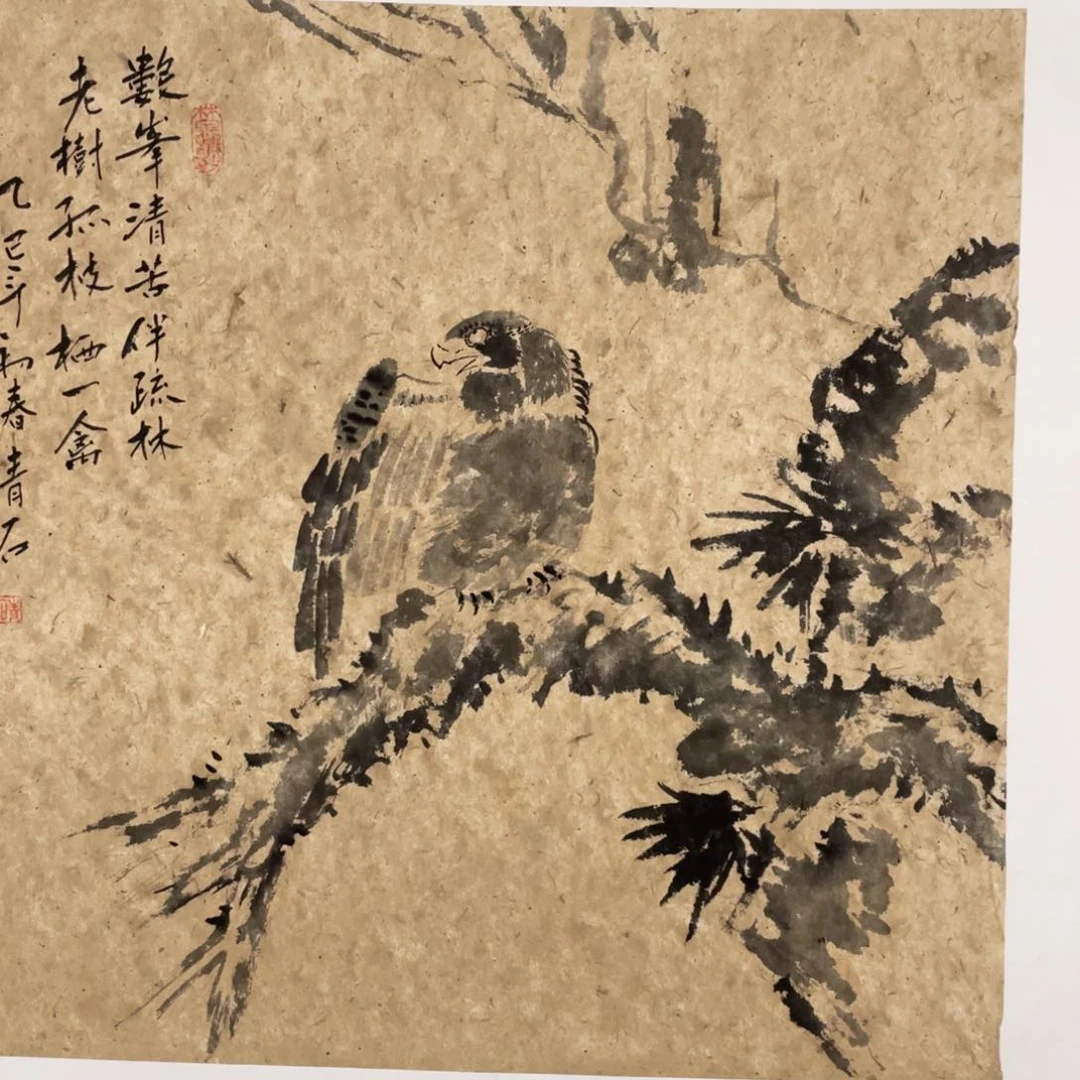 數峯清苦伴疏林
老樹孤枝栖一禽
乙巳年初春青石